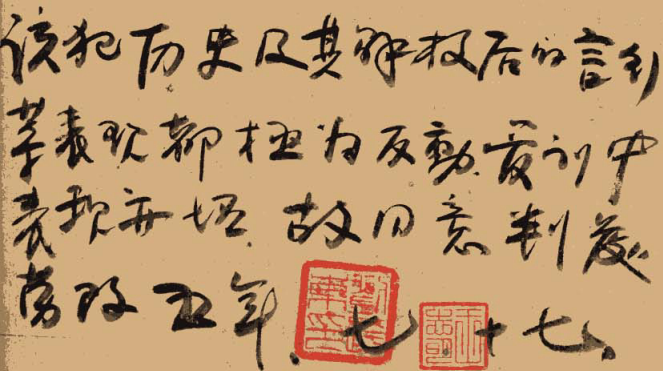 该犯历史及其解放后的言行
表现都极为反動受训中
表现亦坏.故同意判處
劳改五年.七.十七.